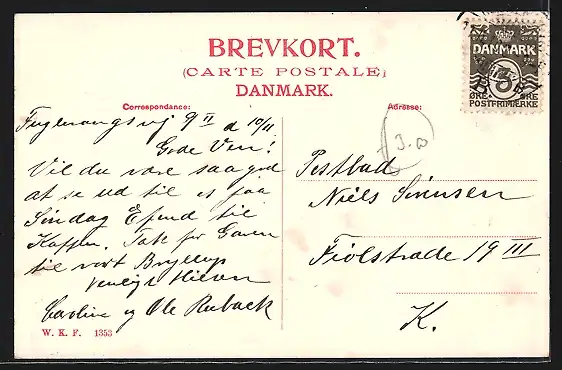 BREVKORT.
(CARTE POSTALE)
DANMARK.
Correspondance:
Adresse:
DANMARK
3
ØRE ØRE
POSTFRIMÆRKE
Fuglevangsvej 9 II d 10/11
Gode Ven!
Vil du være saa god
at se ud til os paa
Søndag Efmd til
Kaffen. Tak for Gaven
til vort Bryllup
Venlig Hilsen
Caroline og Ole Rubaek
J. B
Postbud
Niels Sørensen
Fiolstræde 19 III
K.
W. K. F. 1353